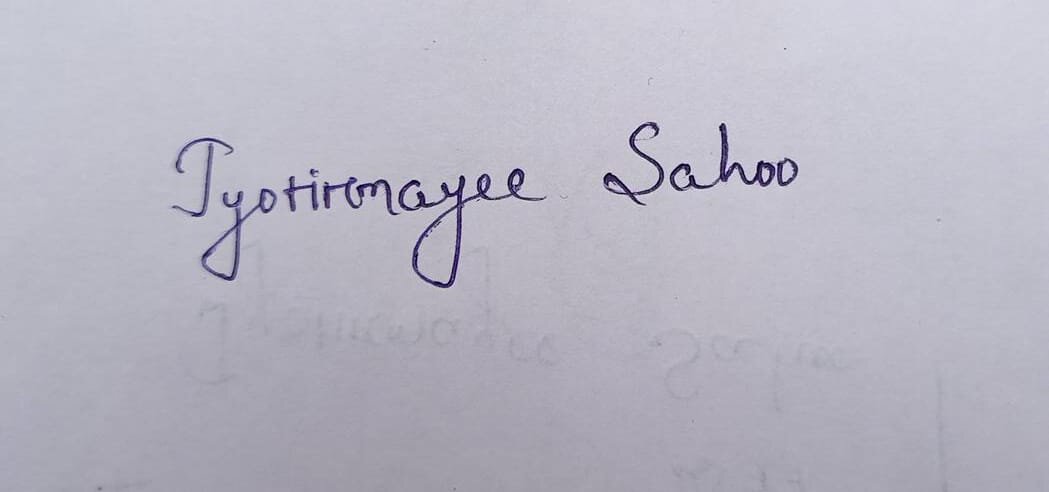 Jyotirmayee Sahoo